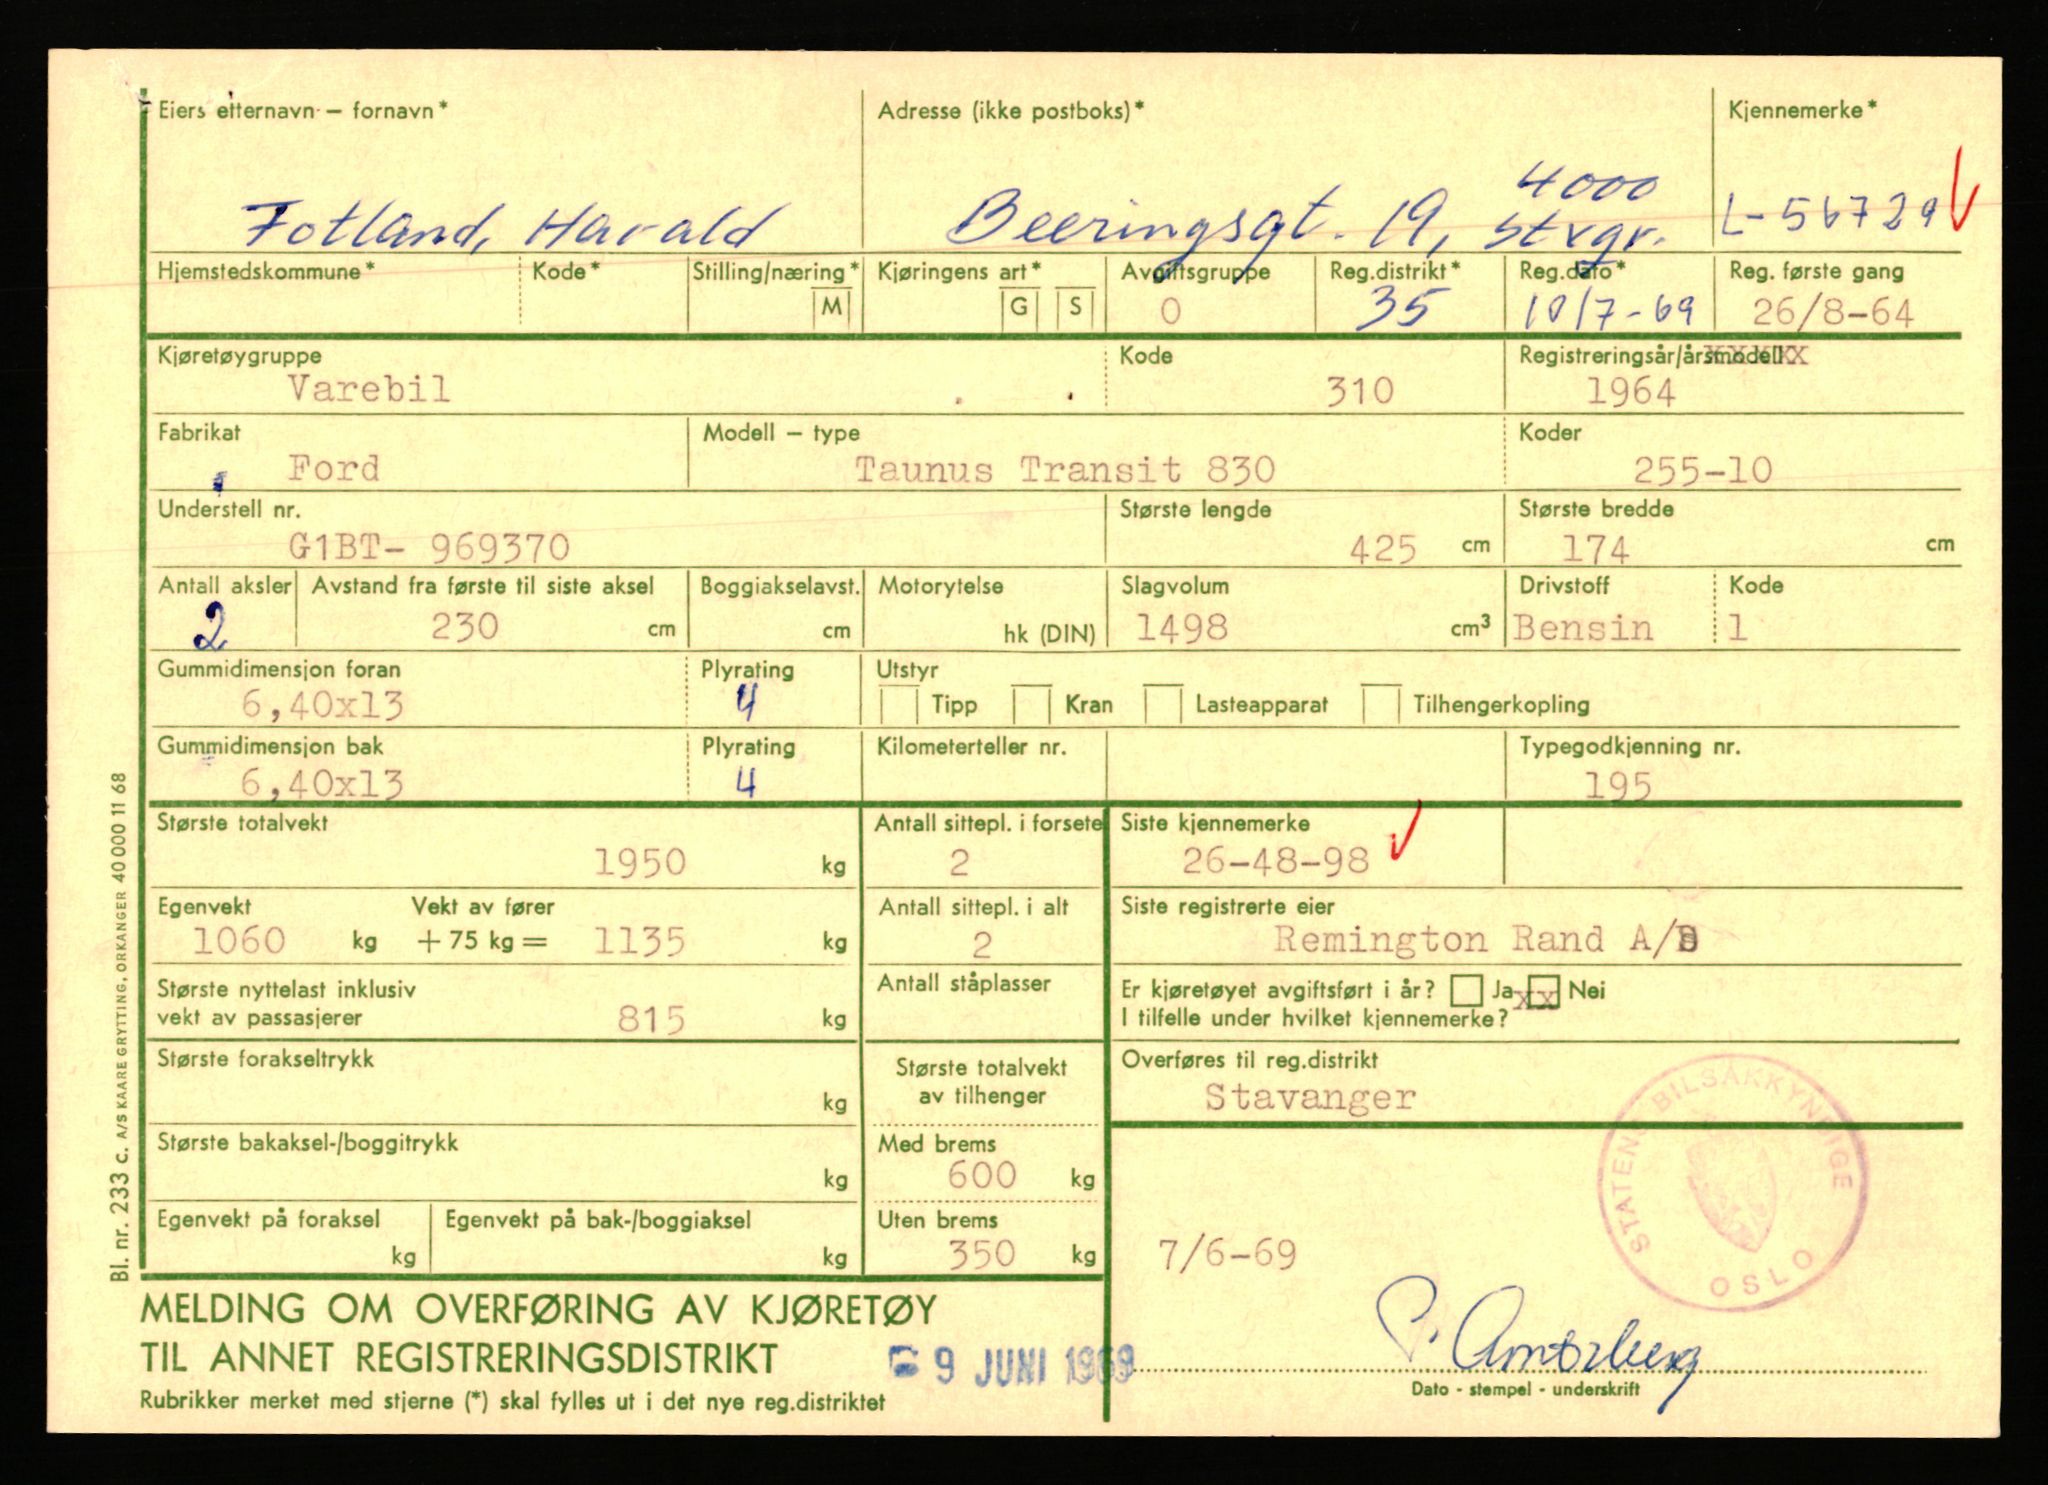 Eiers etternavn – fornavn* Adresse (ikke postboks)* Kjennemerke*
4000
Fotland, Harald Beeringsgt. 19, Stvgr. L-56729
Hjemstedskommune* Kode* Stilling/næring* Kjøringens art* Avgiftsgruppe Reg.distrikt* Reg.dato* Reg. første gang
M G S 0 35 10/7-69 26/8-64
Kjøretøygruppe Kode Registreringsår/årsmodell
Varebil 310 1964
Fabrikat Modell – type Koder
Ford Taunus Transit 830 255-10
Understell nr. Største lengde Største bredde
G1BT- 969370 425 cm 174 cm
Antall aksler Avstand fra første til siste aksel Boggiakselavst. Motorytelse Slagvolum Drivstoff Kode
2 230 cm cm hk (DIN) 1498 cm³ Bensin 1
Gummidimensjon foran Plyrating Utstyr
6,40x13 4 Tipp Kran Lasteapparat Tilhengerkopling
Gummidimensjon bak Plyrating Kilometerteller nr. Typegodkjenning nr.
6,40x13 4 195
Største totalvekt Antall sittepl. i forsete Siste kjennemerke
1950 kg 2 26-48-98
Egenvekt Vekt av fører Antall sittepl. i alt Siste registrerte eier
1060 kg + 75 kg = 1135 kg 2 Remington Rand A/S
Største nyttelast inklusiv Antall ståplasser Er kjøretøyet avgiftsført i år? Ja xx Nei
vekt av passasjerer 815 kg I tilfelle under hvilket kjennemerke?
Største forakseltrykk Største totalvekt Overføres til reg.distrikt
kg av tilhenger Stavanger
Største bakaksel-/boggitrykk Med brems
kg 600 kg
Egenvekt på foraksel Egenvekt på bak-/boggiaksel Uten brems
kg kg 350 kg 7/6-69
STATENS BILSAKKYNDIGE
OSLO
MELDING OM OVERFØRING AV KJØRETØY
TIL ANNET REGISTRERINGSDISTRIKT 9 JUNI 1969
Rubrikker merket med stjerne (*) skal fylles ut i det nye reg.distriktet Dato - stempel - underskrift
Bl. nr. 233 c. A/S KAARE GRYTTING, ORKANGER 40 000 11 68